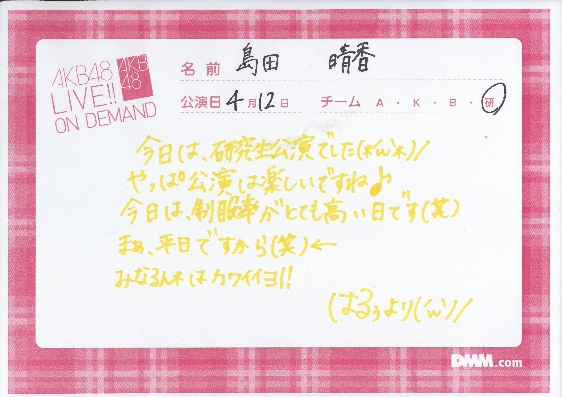 AKB48
LIVE!!
ON DEMAND
AKB
48
名前 島田 晴香
公演日 4月12日 チーム A・K・B・研
今日は、研究生公演でした(*'ω'*)/
やっぱ公演は楽しいですね♪
今日は、制服率がとても高い日です(笑)
まぁ、平日ですから(笑)←
みなるん*はカワイイヨ!!
はるぅより('ω')/
DMM.com